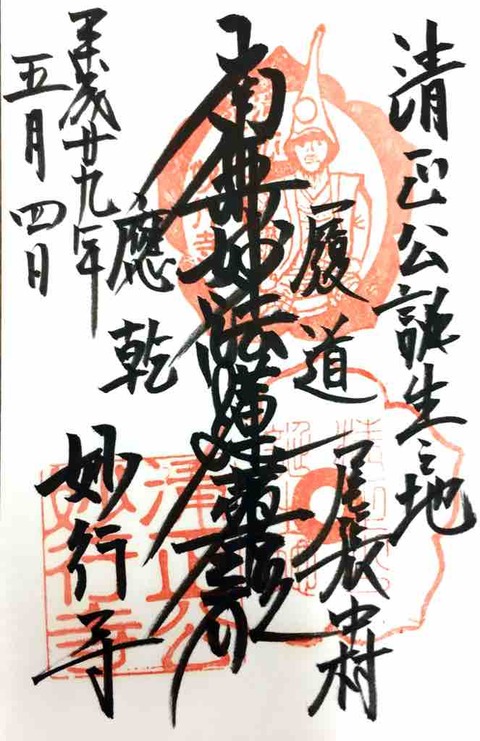 清正公誕生之地
尾張中村
履道
南無妙法蓮華経
應乾
妙行寺
平成廿九年
五月四日
清正公
妙行寺